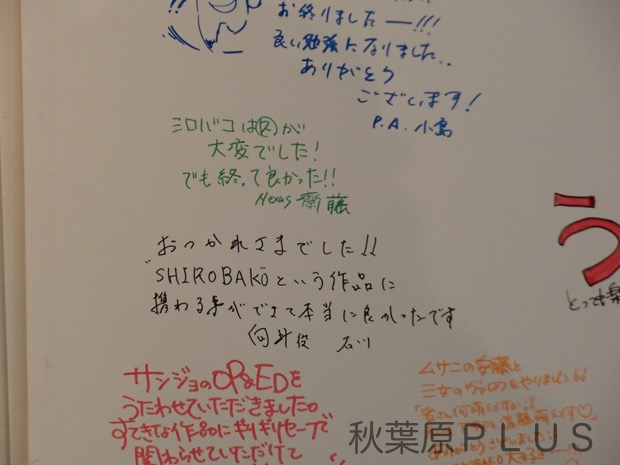 お終りました―!!!
良い勉強になりました..
ありがとう
ございます!
P.A. 小島
ミロバコは㋺が
大変でした!
でも終って良かった!!
Nexus 齋藤
おつかれさまでした!!
"SHIROBAKO"という作品に
携わる事ができて本当に良かったです
石川
う
とっても楽
サンジョのOP&EDを
うたわせていただきました。
すてきな作品にギリギリセーフで
関わらせていただけて
ムサニの安藤と
三女の
秋葉原PLUS